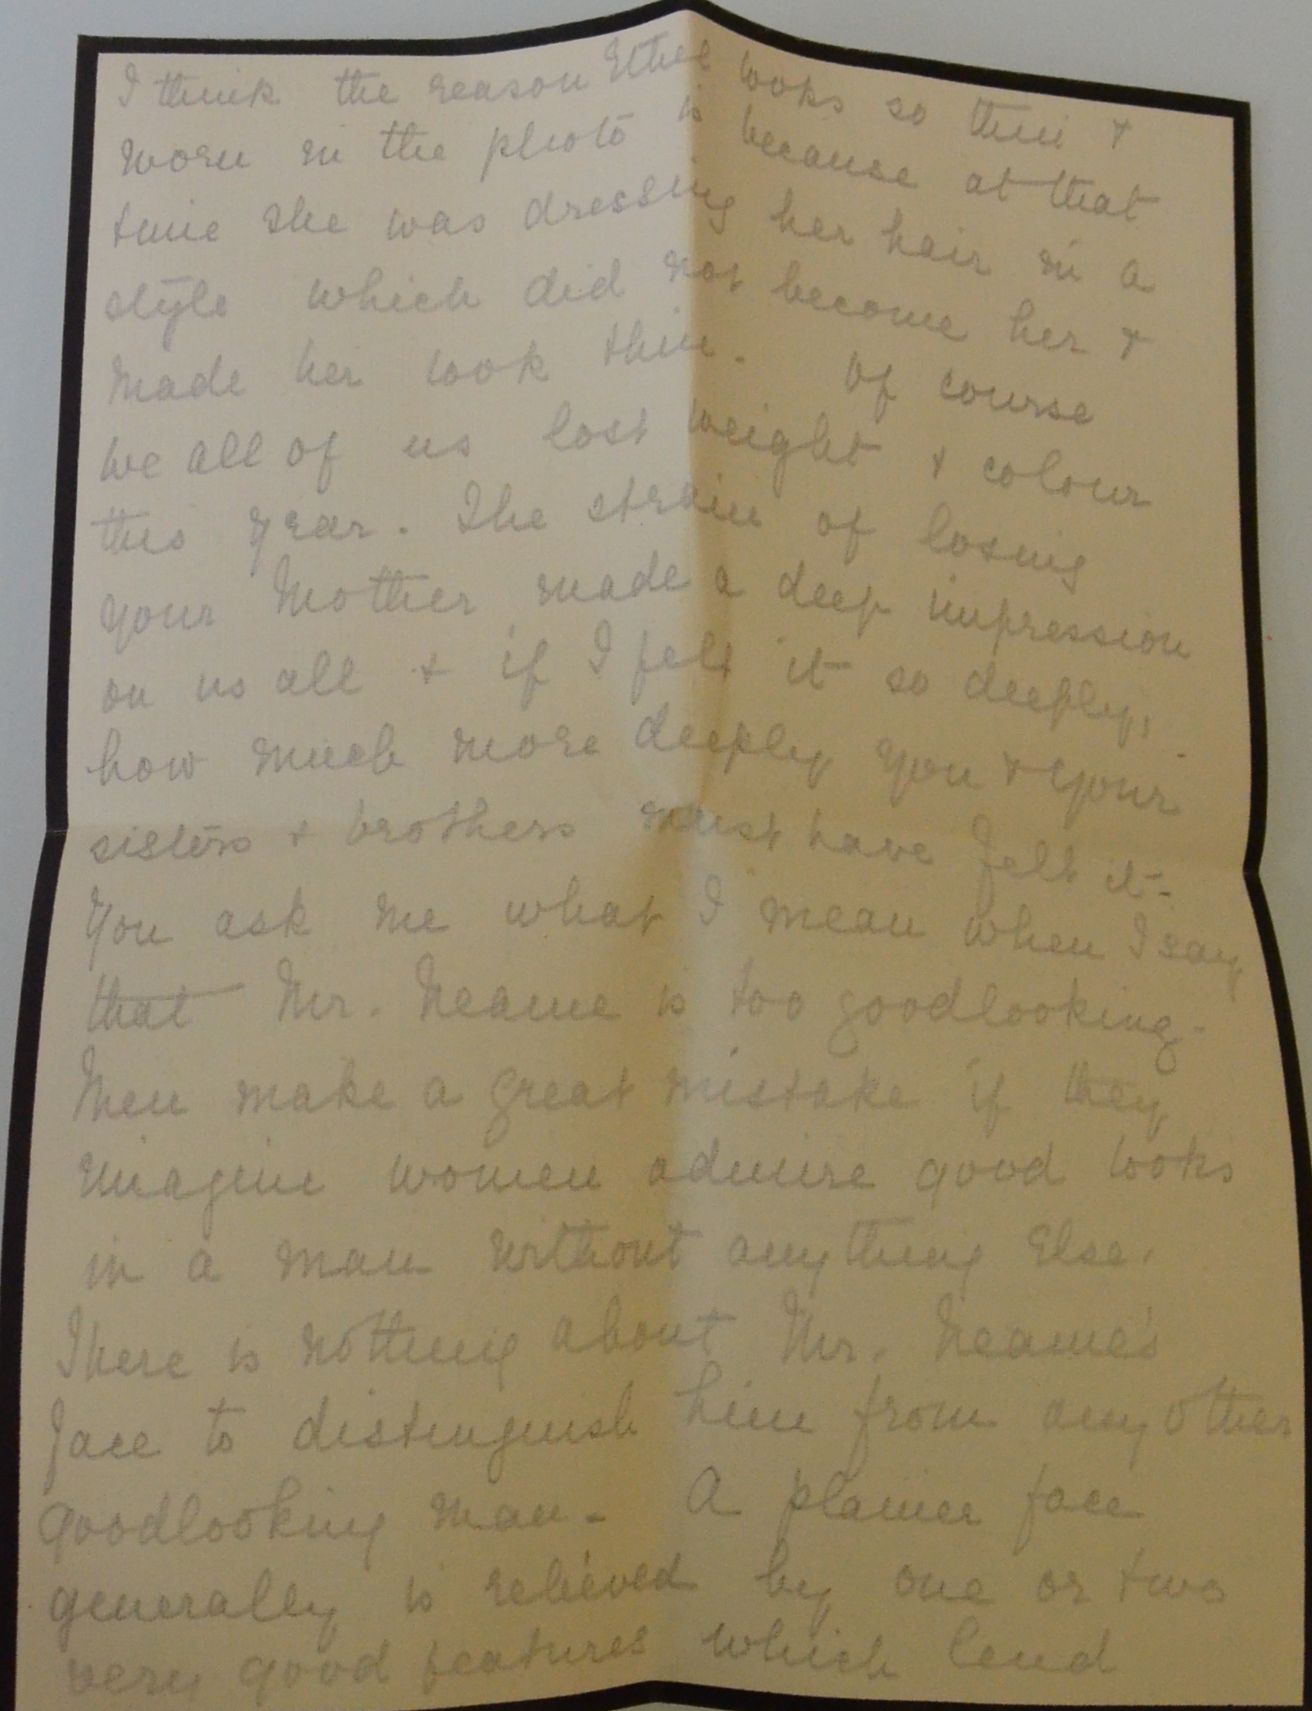 I think the reason Ethel looks so thin +
worn in the photo is because at that
time she was dressing her hair in a
style which did not become her +
made her look thin. Of course
we all of us lost weight + colour
this year. The strain of losing
your Mother made a deep impression
on us all + if I felt it so deeply,
how much more deeply you + your
sisters + brothers must have felt it-
You ask me what I mean when I say
that Mr. Neame is too goodlooking-
Men make a great mistake if they
imagine women admire good looks
in a man without anything else.
There is nothing about Mr. Neame's
face to distinguish him from any other
goodlooking man- A plainer face
generally is relieved by one or two
very good features which lend